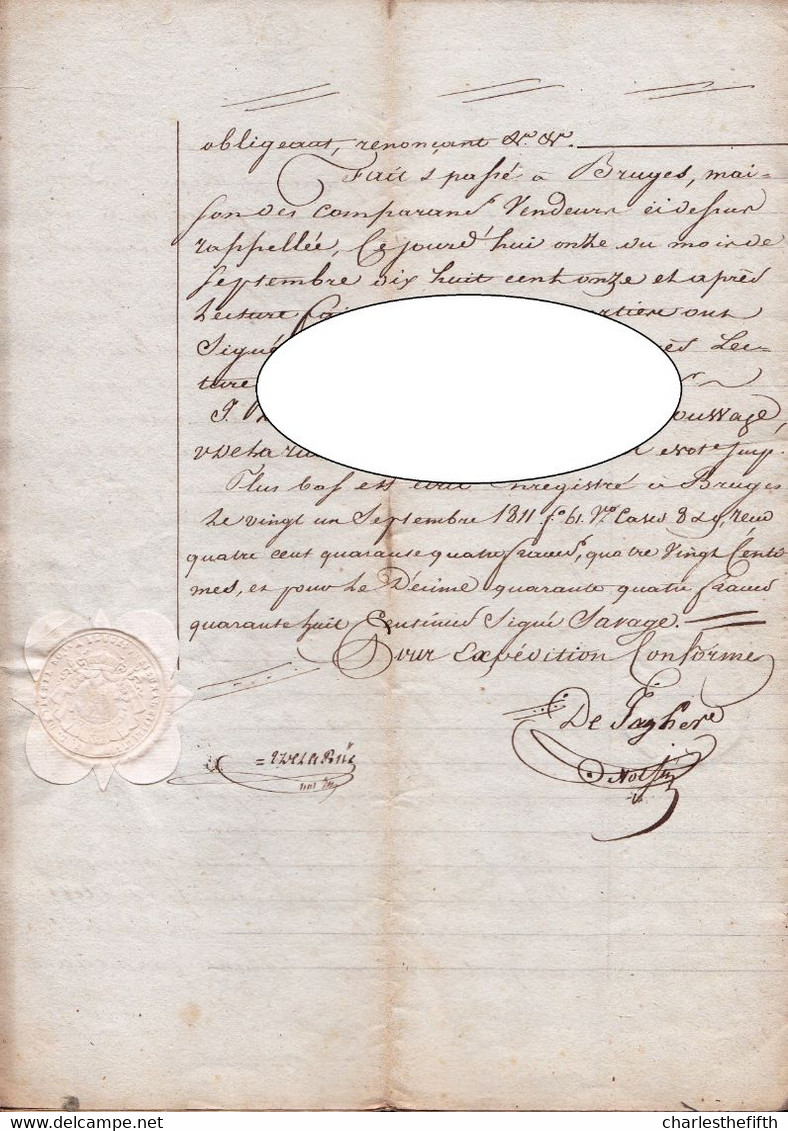 obligeant, renonçant &r. &r.
Fait & passé à Bruges, mai-
son des comparans Vendeurs ci dessus
rappellée, Ce jourd'hui onze du mois de
Septembre dix huit cent onze et après
Lecture ont
Signé Lec-
ture
ouwage,
Plus bas est écrit Enregistré à Bruges
Le vingt un Septembre 1811 fo. 61. Vo. Cases 8 & 9, reçu
quatre cent quarante quatre francs, quatre Vingt Centi
mes, et pour Le Décime quarante quatre francs
quarante huit Centimes Signé Savage.
Pour Expédition Conforme
De Jaghere
Not
charlesthefifth